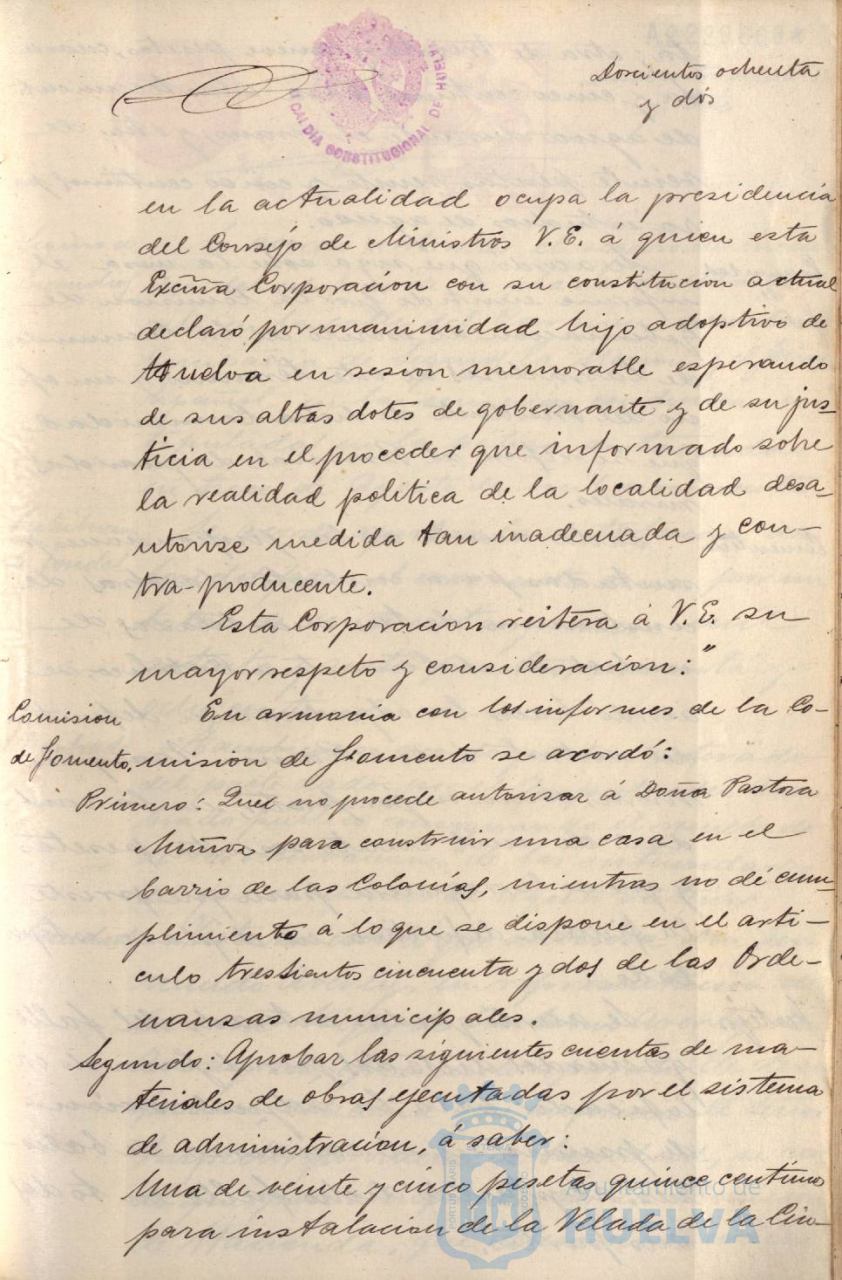 Doscientos ochenta
y dós
ALCALDIA CONSTITUCIONAL DE HUELVA
en la actualidad ocupa la presidencia
del Consejo de Ministros V. E. á quien esta
Excma Corporacion con su constitucion actual
declaró por unanimidad hijo adoptivo de
Huelva en sesion memorable esperando
de sus altas dotes de gobernante y de su jus-
ticia en el proceder que informado sobre
la realidad politica de la localidad desa-
utorise medida tan inadecuada y con-
tra-producente.
Esta Corporacion reitera á V. E. su
mayor respeto y consideracion:"
Comision
de Fomento.
En armonia con los informes de la Co-
mision de Fomento se acordó:
Primero: Que no procede autorisar á Doña Pastora
Muñoz para construir una casa en el
barrio de las Colonias, mientras no dé cum-
plimiento á lo que se dispone en el arti-
culo trescientos cincuenta y dos de las Orde-
nansas municipales.
Segundo: Aprobar las siguientes cuentas de ma-
teriales de obras ejecutadas por el sistema
de administracion, á saber:
Una de veinte y cinco pesetas quince centimos
para instalacion de la Velada de la Cin-
Ayuntamiento de
HUELVA